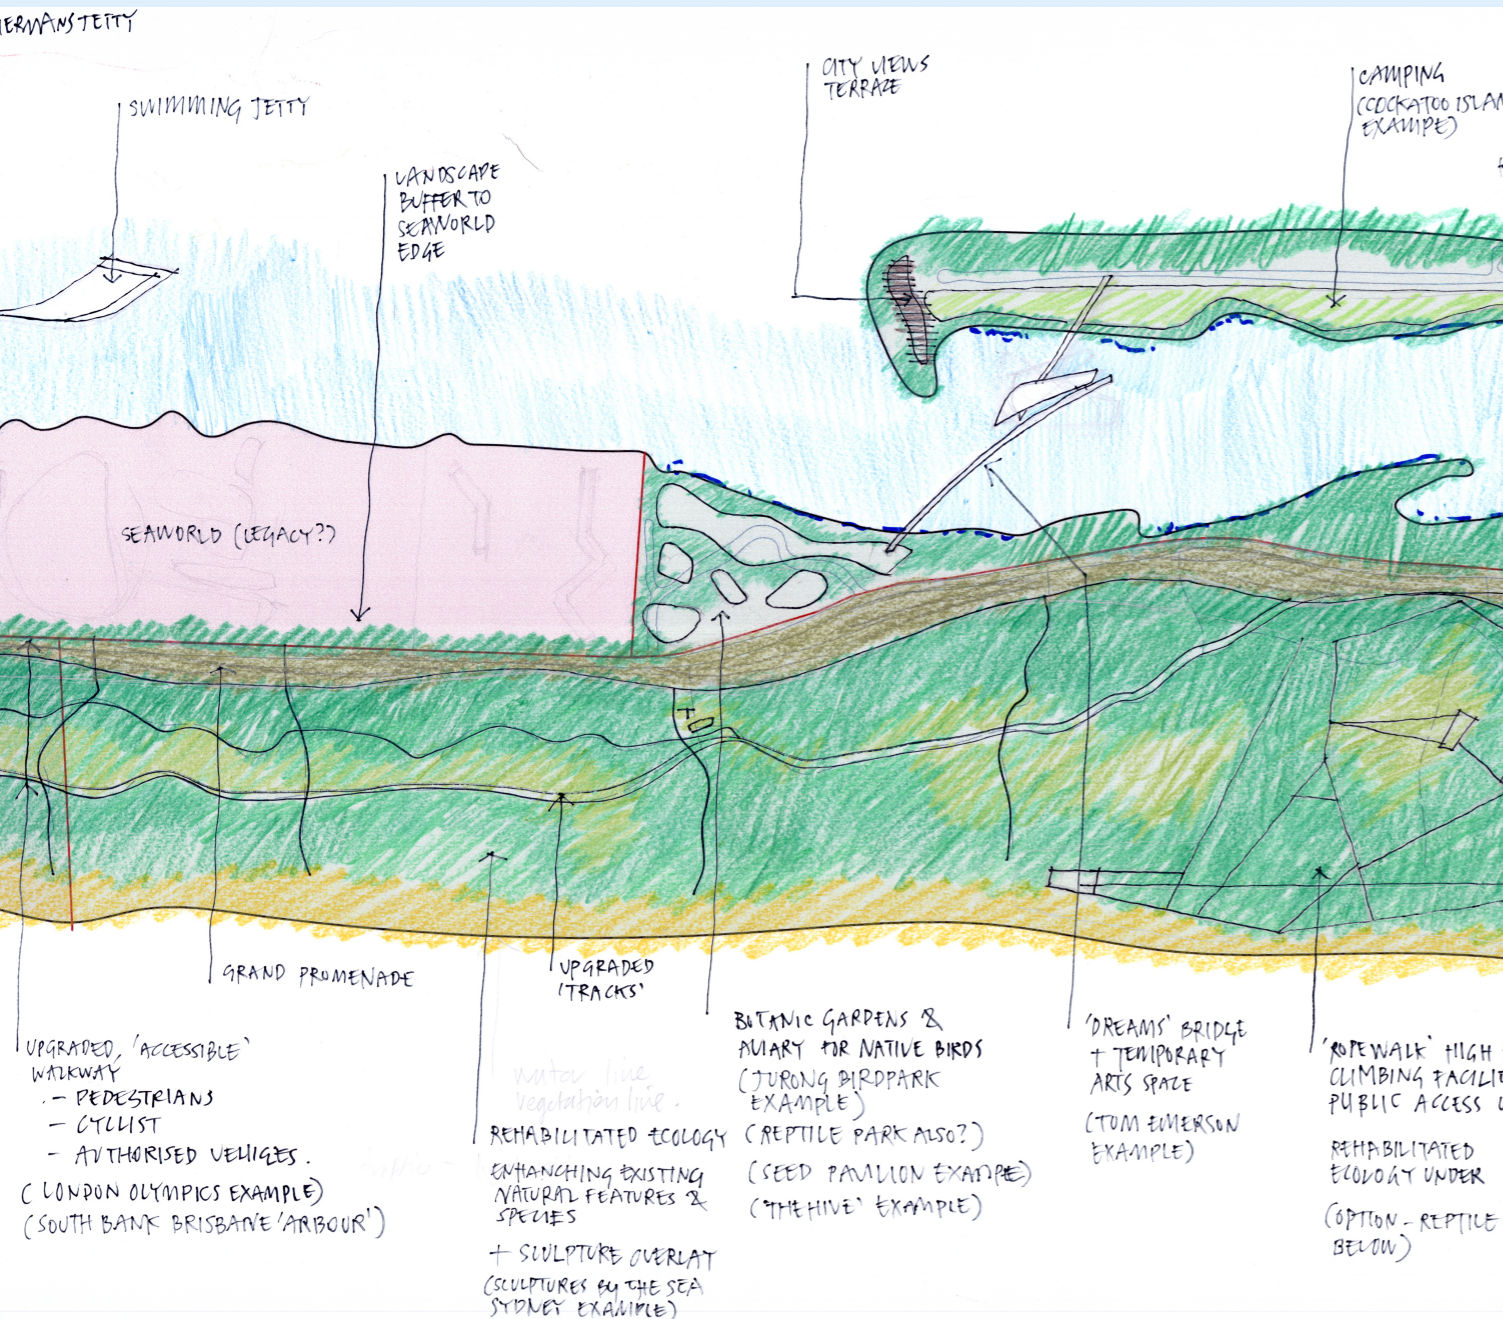 HERMANS JETTY
SWIMMING JETTY
LANDSCAPE
BUFFER TO
SEAWORLD
EDGE
CITY VIEWS
TERRAZE
CAMPING
(COCKATOO ISLAN
EXAMPE)
SEAWORLD (LEGACY?)
GRAND PROMENADE
UPGRADED
'TRACKS'
UPGRADED, 'ACCESSIBLE'
WALKWAY
- PEDESTRIANS
- CYCLIST
- AUTHORISED VEHICES.
(LONDON OLYMPICS EXAMPLE)
(SOUTH BANK BRISBANE 'ARBOUR')
water line
vegetation line.
REHABILITATED ECOLOGY
ENHANCHING EXISTING
NATURAL FEATURES &
SPECIES
+ SCULPTURE OVERLAY
(SCULPTURES BY THE SEA
SYDNEY EXAMPLE)
BOTANIC GARDENS &
AVIARY FOR NATIVE BIRDS
(JURONG BIRDPARK
EXAMPLE)
(REPTILE PARK ALSO?)
(SEED PAVILION EXAMPE)
('THE HIVE' EXAMPLE)
'DREAMS' BRIDGE
+ TEMPORARY
ARTS SPACE
(TOM EMERSON
EXAMPLE)
'ROPEWALK' HIGH
CLIMBING FACILIT
PUBLIC ACCESS
REHABILITATED
ECOLOGY UNDER
(OPTION - REPTILE
BELOW)